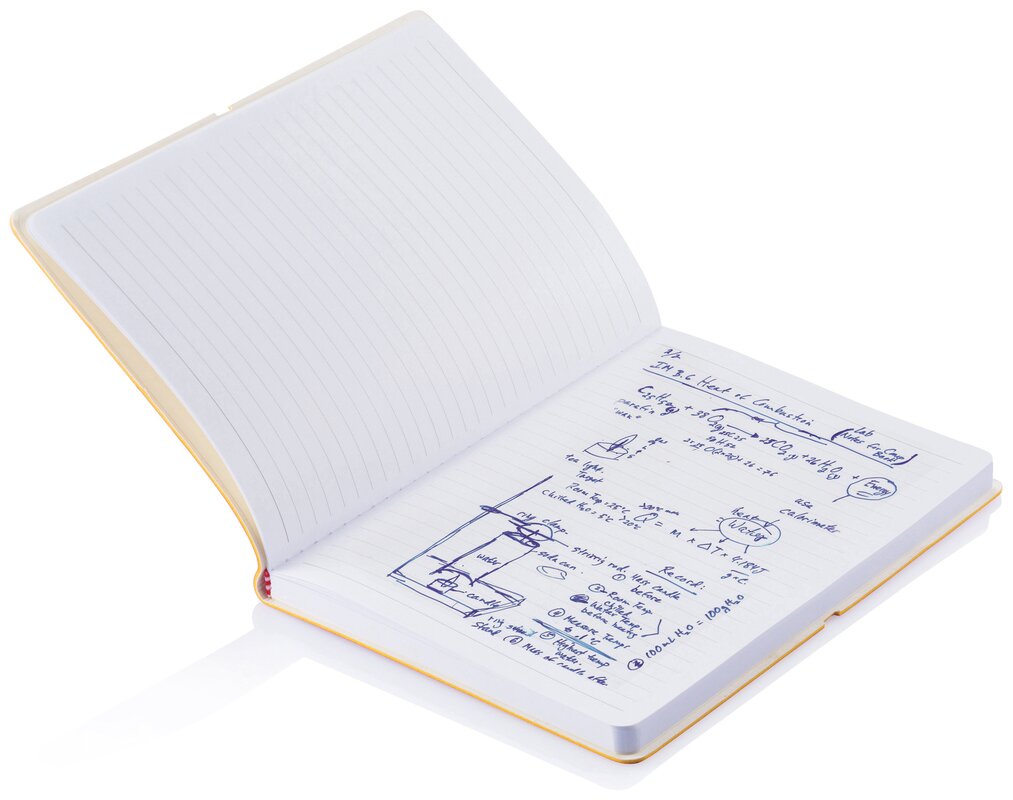 IM 3.6 Heat of Combustion
(Lab Notes for Comp Book)
C25H52(s) + 38 O2(g) → 25 CO2(g) + 26 H2O(g) + Energy
paraffin
"wax"
tea light.
Target
Room Temp = 25°C
Chilled H2O = 5°C
use
calorimeter
heat
Water
Q = m × ΔT × 4.184J
g°C
ring clamp.
stirring rod.
soda can.
water
candle
ring stand
Record:
① Mass candle before
Room Temp
Water Temp.
before heating
④ Measure Temps
⑤ Highest temp
water.
⑥ Mass of candle after.
100 mL H2O = 100g H2O